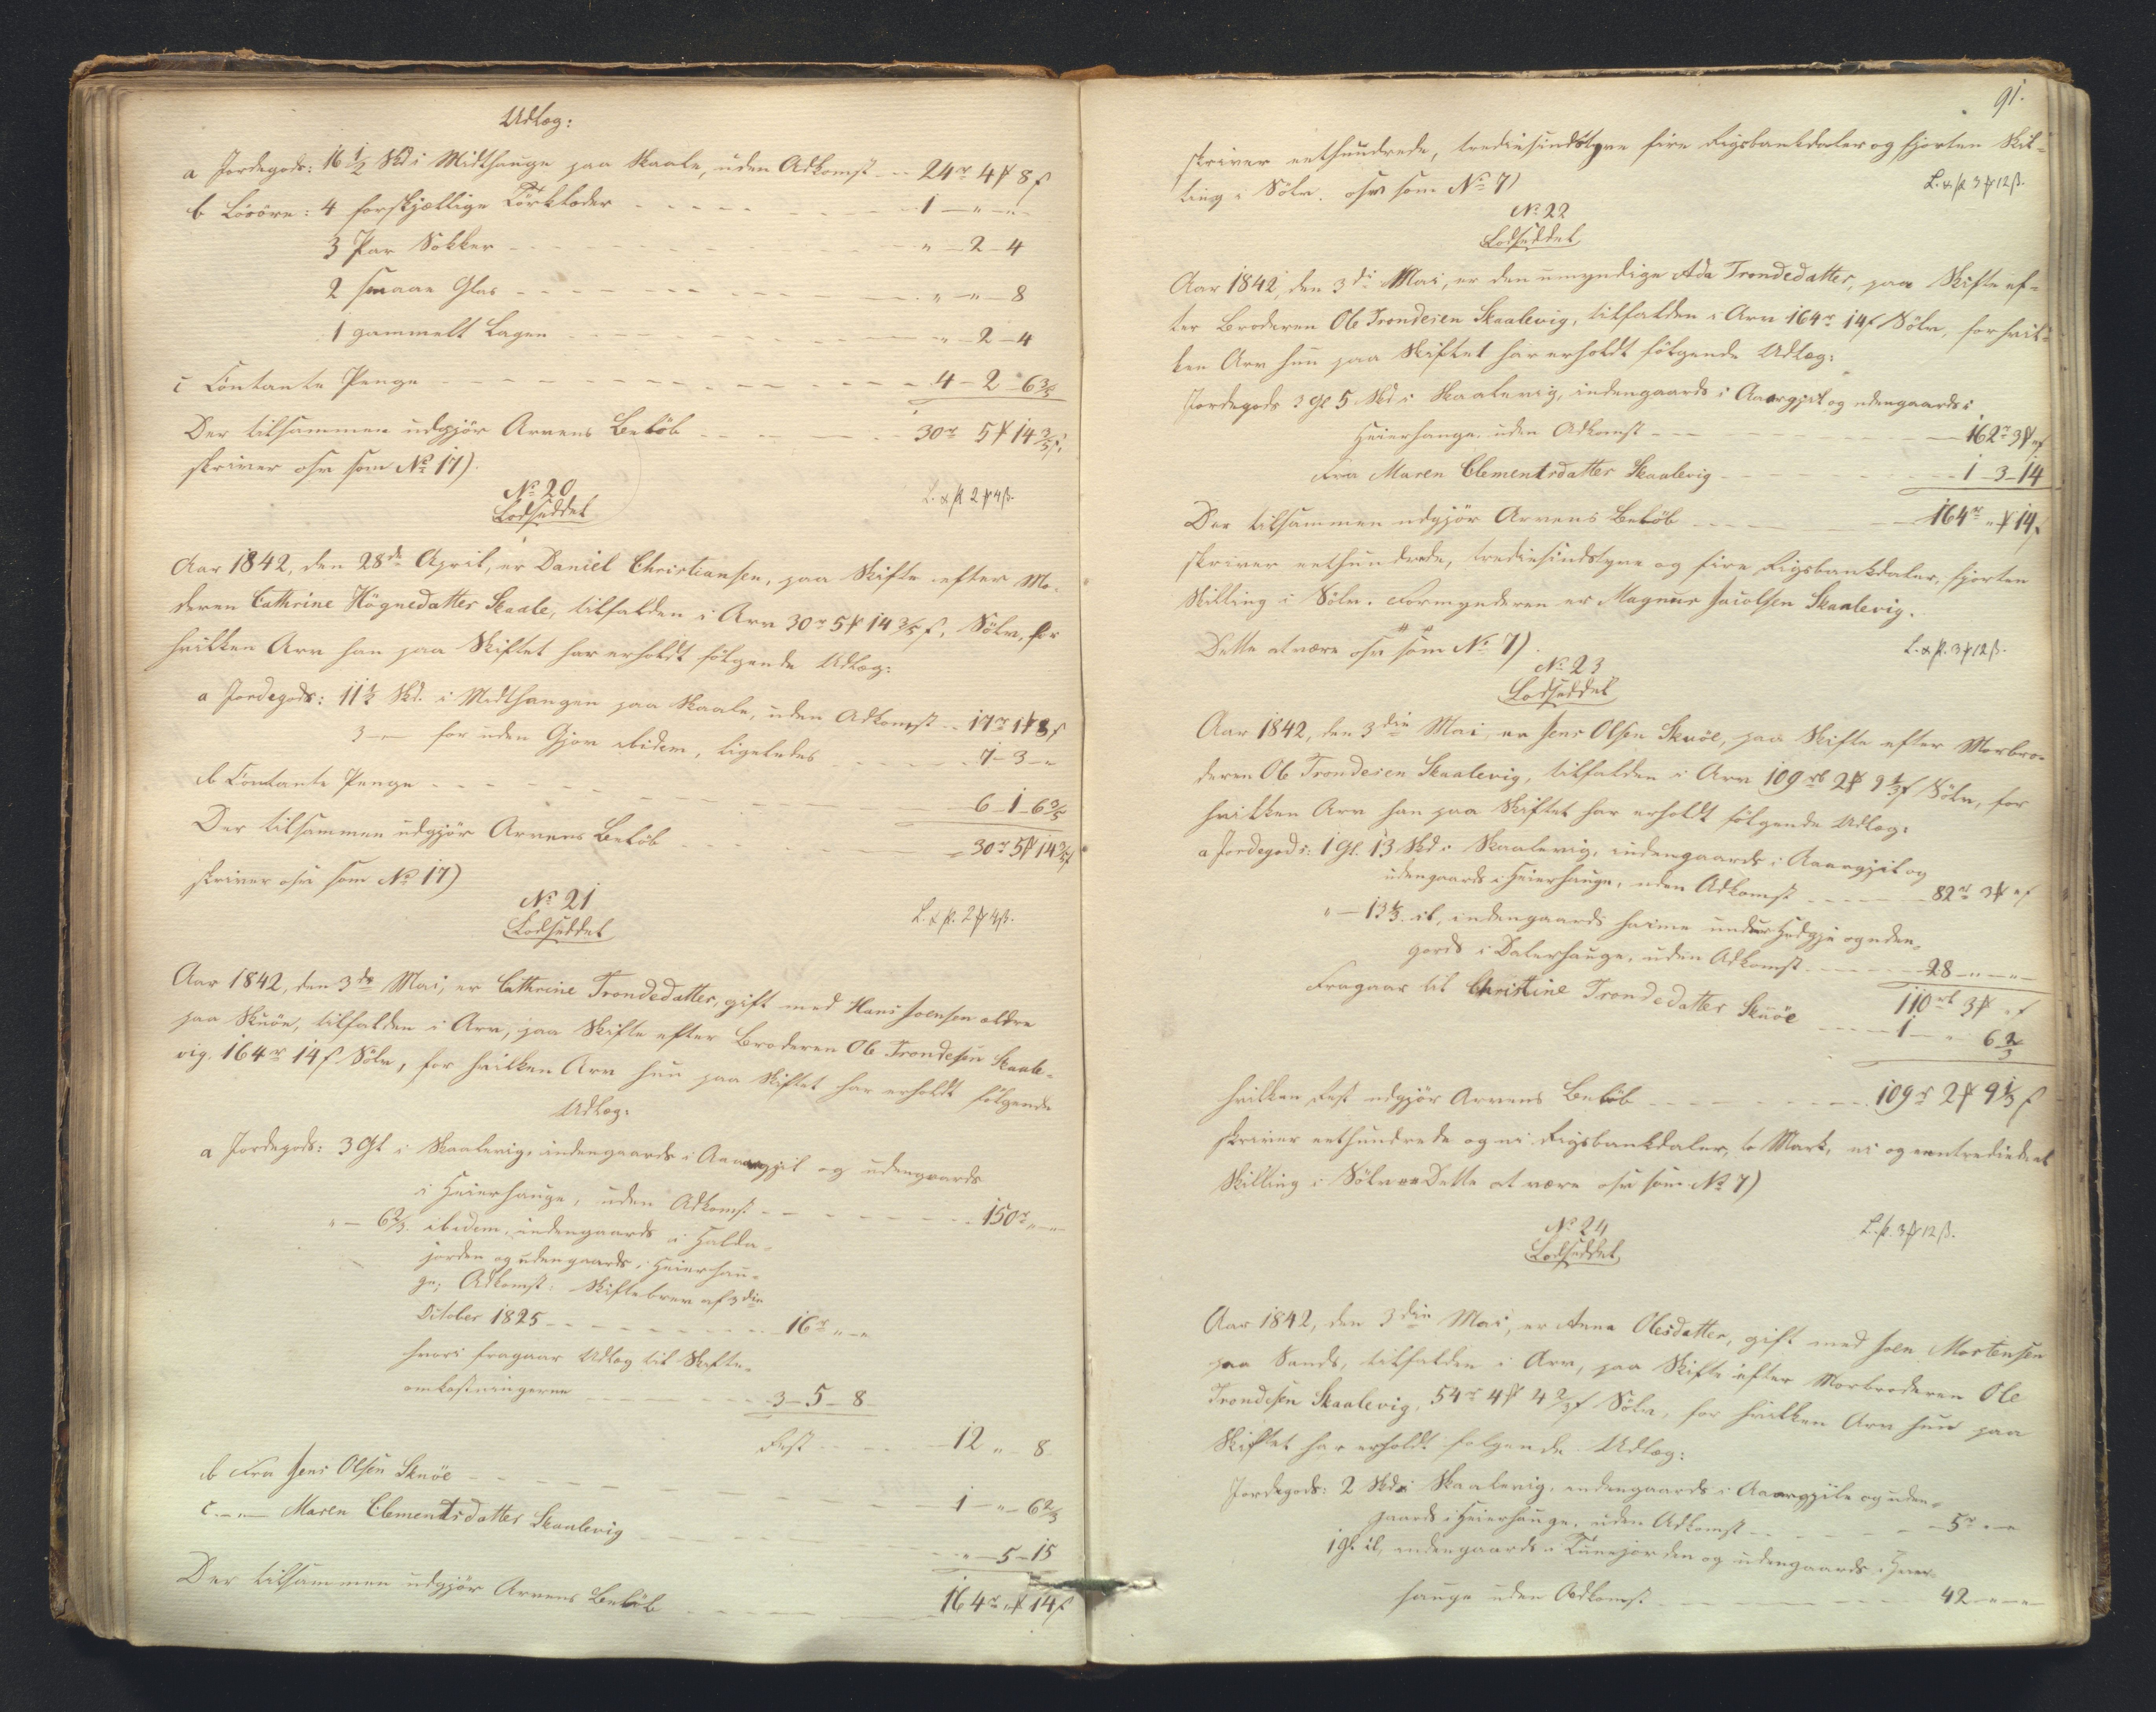 Udlæg:
a Jordegods: 16 1/2 Skd i Midthauge paa Skaale, uden Adkomst 24 rd 4 ₰ 8 s
b Lösöre: 4 forskjællige Törklæder 1 — " — "
3 Par Sokker " — 2 — 4
2 smaae Glas " — " — 8
1 gammelt Lagen " — 2 — 4
c Contante Penge 4 — 2 — 6 3/5
Der tilsammen udgjör Arvens Belöb 30 rd 5 ₰ 14 3/5 s
skriver osv som No 17).
No 20
L. & p. 2 ₰ 4 ß.
Lodseddel
Aar 1842, den 28de April, er Daniel Christiansen, paa Skifte efter Mo-
deren Cathrine Högnedatter Skaale, tilfalden i Arv 30 rd 5 ₰ 14 3/5 s. Sölv, for
hvilken Arv han paa Skiftet har erholdt fölgende Udlæg:
a Jordegods: 11 1/2 Skd. i Midthaugen paa Skaale, uden Adkomst 17 rd 1 ₰ 8 s
3 — " — for uden Gjov ibidem, ligeledes 7 — 3 — "
b Contante Penge 6 — 1 — 6 3/5
Der tilsammen udgjör Arvens Belöb 30 rd 5 ₰ 14 3/5 s
skriver osv som No 17)
No 21
L. & p. 2 ₰ 4 ß.
Lodseddel
Aar 1842, den 3die Mai, er Cathrine Trondedatter, gift med Hans Joensen ældre
paa Skuöe, tilfalden i Arv, paa Skifte efter Broderen Ole Trondesen Skaale-
vig. 164 rd 14 s Sölv, for hvilken Arv hun paa Skiftet har erholdt fölgende
Udlæg:
a Jordegods: 3 Gl i Skaalevig, indengaards i Aaargjil og udengaards
i Heierhauge, uden Adkomst 150 rd " — "
" — 6 2/3. ibidem, indengaards i Halda-
jorden og udengaards i Heierhau-
ge; Adkomst: Skiftebrev af 3die
October 1825 16 rd " — "
hvori fragaar Udlæg til Skifte-
omkostningerne 3 — 5 — 8
Rest 12 " — 8
b Fra Jens Olsen Skuöe 1 — " — 6 2/3
c — " — Maren Clementsdatter Skaalevig " — 5 — 15
Der tilsammen udgjör Arvens Belöb 164 rd " ₰ 14 s
91.
skriver eethundrede, trediesindstyve fire Rigsbankdaler og fjorten Skil-
ling i Sölv. osv som No 7)
L. & p. 3 ₰ 12 ß.
No 22
Lodseddel
Aar 1842, den 3die Mai, er den umyndige Ada Trondedatter, paa Skifte ef-
ter Broderen Ole Trondesen Skaalevig, tilfalden i Arv 164 rd 14 s Sölv, for hvil-
ken Arv hun paa Skiftet har erholdt fölgende Udlæg:
Jordegods 3 Gl 5 Skd i Skaalevig, indengaards i Aaargjil og udengaards i
Heierhauge, uden Adkomst 162 rd 3 ₰ " s
Fra Maren Clementsdatter Skaalevig 1 — 3 — 14
Der tilsammen udgjör Arvens Belöb 164 rd " ₰ 14 s
skriver eethundrede, trediesindstyve og fire Rigsbankdaler, fjorten
Skilling i Sölv. Formynderen er Magnus Jacobsen Skaalevig.
Dette at være osv som No 7).
L. & p. 3 ₰ 12 ß.
No 23
Lodseddel
Aar 1842, den 3die Mai, er Jens Olsen Skuöe, paa Skifte efter Morbro-
deren Ole Trondesen Skaalevig, tilfalden i Arv 109 rd 2 ₰ 9 1/3 s Sölv, for
hvilken Arv han paa Skiftet har erholdt fölgende Udlæg:
a Jordegods: 1 Gl. 13 Skd i Skaalevig, indengaards i Aaaagjil og
udengaards i Heierhauge, uden Adkomst 82 rd 3 ₰ " s
" — 13 1/3. ib, indengaards heime under Hedgje og uden-
gards i Dalerhauge, uden Adkomst 28 — " — "
110 rd 3 ₰ " s
Fragaar til Christine Trondedatter Skuöe 1 — " 6 2/3
hvilken Rest udgjör Arvens Belöb 109 rd 2 ₰ 9 1/3 s
skriver eethundrede og ni Rigsbankdaler, to Mark, ni og eentrediedeel
Skilling i Sölv Dette at være osv som No 7)
No 24
L. p. 3 ₰ 12 ß.
Lodseddel
Aar 1842, den 3die Mai, er Anna Olesdatter, gift med Joen Mortensen
paa Sands, tilfalden i Arv, paa Skifte efter Morbroderen Ole
Trondesen Skaalevig, 54 rd 4 ₰ 4 2/3 s Sölv, for hvilken Arv hun paa
Skiftet har erholdt fölgende Udlæg:
Jordegods: 2 Skd i Skaalevig, indengaards i Aaargjile og uden-
gaards i Heierhauge, uden Adkomst 5 rd " — "
1 Gl ib, indengaards i Tunejorden og udengaards i Heier-
hauge uden Adkomst 42 — " — "